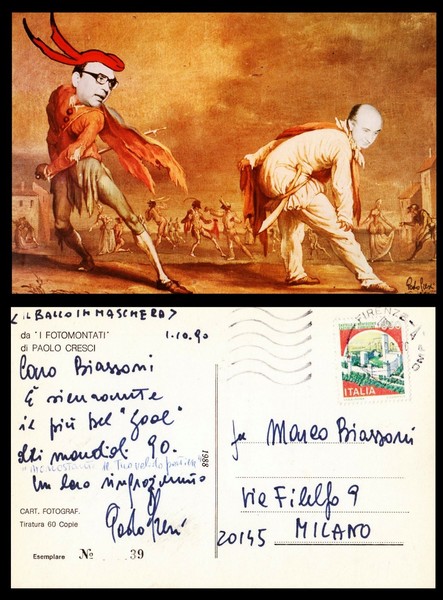 Paolo Cresci
< IL BALLO IN MASCHERA >
da "I FOTOMONTATI"
di PAOLO CRESCI
1-10.90
Caro Biassoni
È sicuramente
il più bel "goal"
dei mondiali 90.
un caro ringraziamento
Paolo Cresci
CART. FOTOGRAF.
Tiratura 60 Copie
Esemplare No 39
1988
FIRENZE
ITALIA
per Marco Biassoni
Via Filelfo 9
20145 MILANO